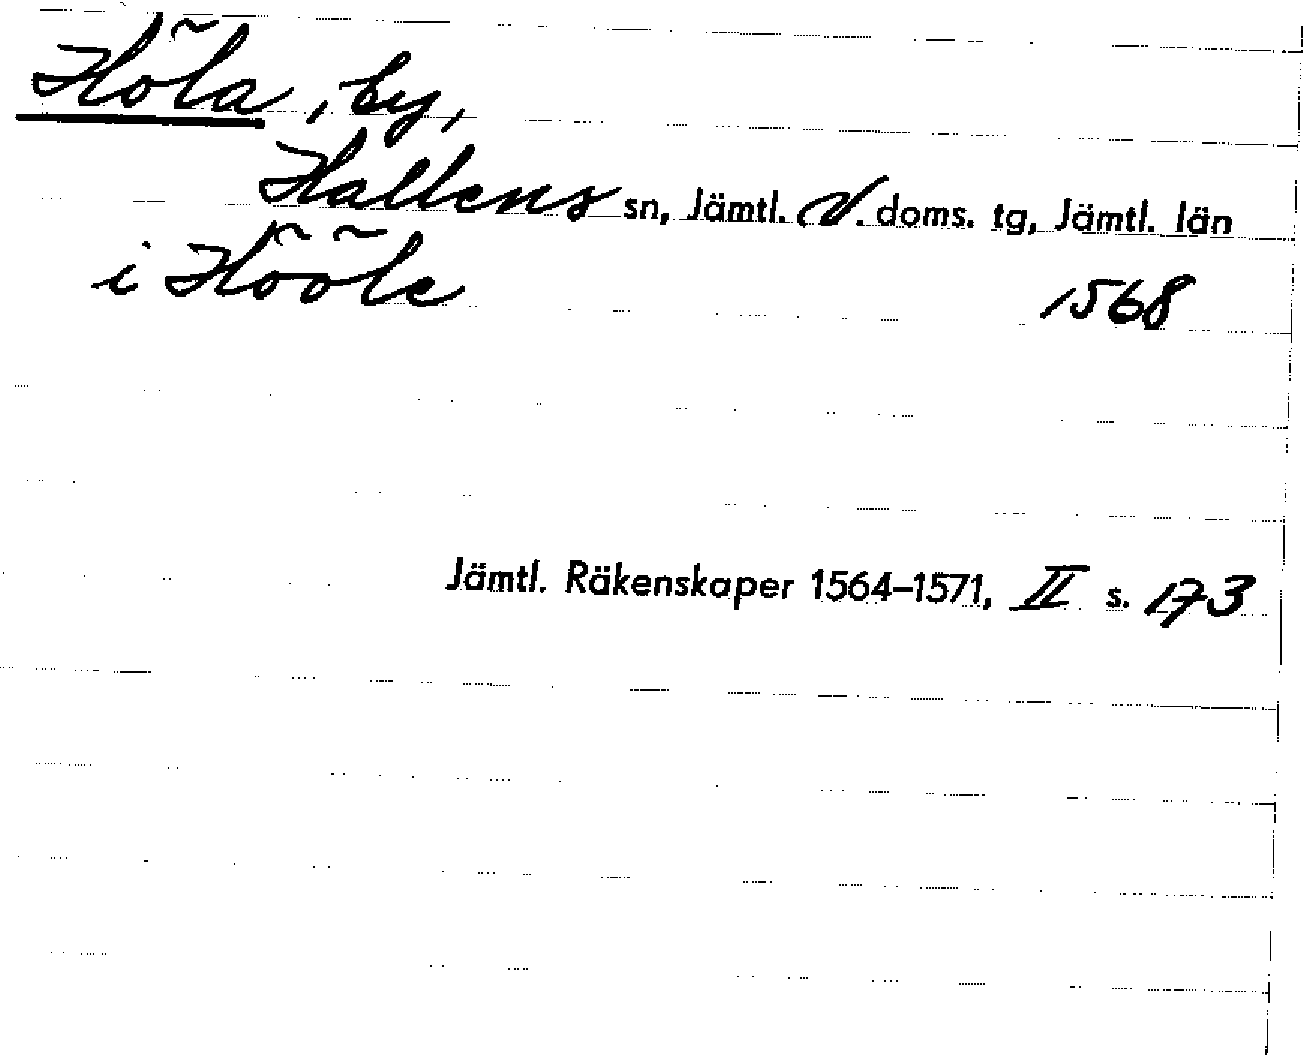 Höla, by,
Hallens sn, Jämtl. V. doms. tg, Jämtl. län
i Hööle 1568
Jämtl. Räkenskaper 1564–1571, II s. 173